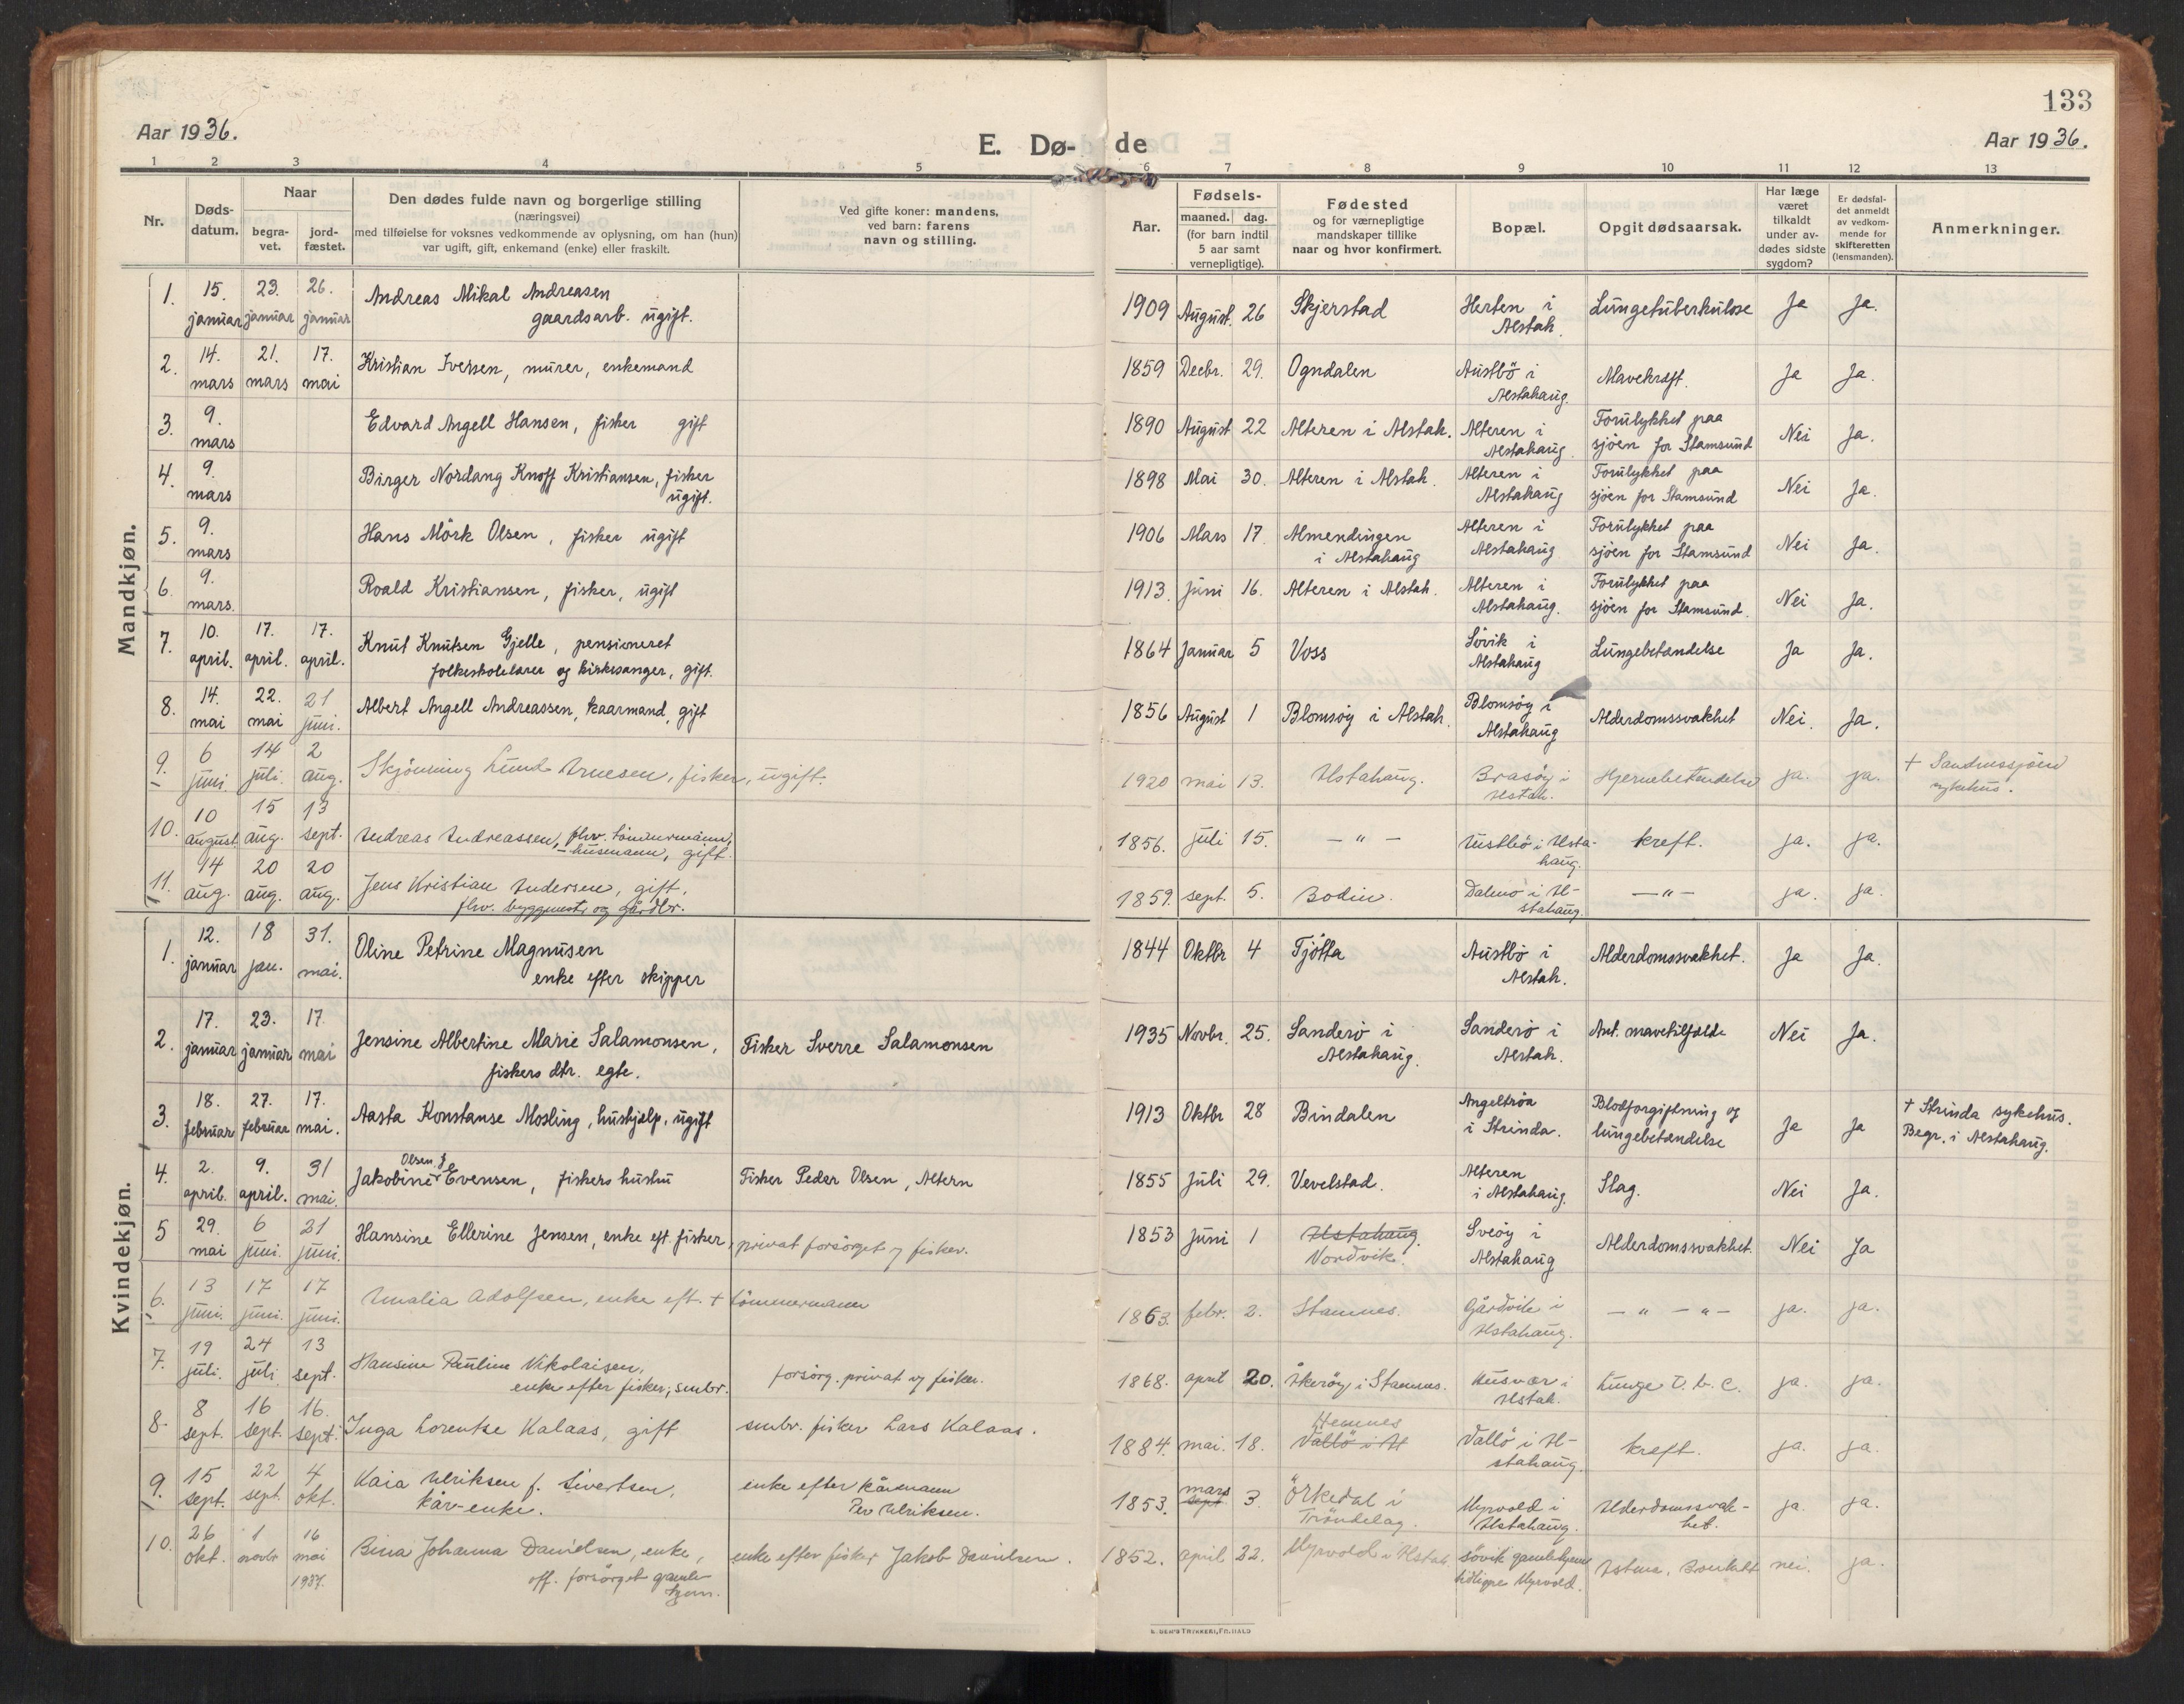 133
Aar 1936.
E. Dø- de
Aar 1936.
1 2 3 4 5 6 7 8 9 10 11 12 13
Nr.
Døds-
datum.
Naar
begra-
vet.
jord-
fæstet.
Den dødes fulde navn og borgerlige stilling
(næringsvei)
med tilføielse for voksnes vedkommende av oplysning, om han (hun)
var ugift, gift, enkemand (enke) eller fraskilt.
Ved gifte koner: mandens,
ved barn: farens
navn og stilling.
Aar.
Fødsels-
maaned. dag.
(for barn indtil
5 aar samt
vernepligtige).
Fødested
og for værnepligtige
mandskaper tillike
naar og hvor konfirmert.
Bopæl.
Opgit dødsaarsak.
Har læge
været
tilkaldt
under av-
dødes sidste
sygdom?
Er dødsfal-
det anmeldt
av vedkom-
mende for
skifteretten
(lensmanden).
Anmerkninger.
Mandkjøn.
1. 15. januar 23. januar 26. januar Andreas Mikal Andreasen
gaardsarb. ugift. 1909 August. 26 Skjerstad Herten i
Alstah. Lungetuberkulose Ja Ja.
2. 14. mars 21. mars 17. mai Kristian Iversen, murer, enkemand 1859 Decbr. 29. Ogndalen Austbö i
Alstahaug. Mavekræft. Ja Ja.
3. 9. mars Edvard Angell Hansen, fisker gift 1890 August 22 Alteren i Alstah. Alteren i
Alstahaug. Forulykket paa
sjöen for Stamsund Nei Ja.
4. 9. mars Birger Nordang Knoff Kristiansen, fisker
ugift. 1898 Mai 30. Alteren i Alstah. Alteren i
Alstahaug Forulykket paa
sjöen for Stamsund Nei Ja.
5. 9. mars Hans Mörk Olsen, fisker ugift 1906 Mars 17. Almendingen
i Alstahaug Alteren i
Alstahaug Forulykket paa
sjöen for Stamsund Nei Ja.
6. 9. mars. Roald Kristiansen, fisker, ugift 1913. Juni 16. Alteren i Alstah. Alteren i
Alstahaug. Forulykket paa
sjöen for Stamsund. Nei Ja.
7. 10. april. 17. april. 17. april. Knut Knutsen Gjelle, pensioneret
folkeskolelærer og kirkesanger, gift. 1864 Januar 5 Voss Sövik i
Alstahaug Lungebetændelse Ja Ja.
8. 14. mai 22. mai 21 juni. Albert Angell Andreassen, kaarmand, gift 1856 August 1 Blomsöy i Alstah. Blomsöy i
Alstahaug Alderdomssvakhet Nei. Ja.
9. 6 juni. 14 juli. 2 aug. Skjönning Lund Arnesen, fisker, ugift. 1920 mai 13. Alstahaug. Brasöy i
Alstah. Hjernebetendelse ja. ja. + Sandnessjöen
sykehus.
10. 10 august. 15 aug. 13 sept. Andreas Andreassen, fhv. tömmermann,
- husmann, gift. 1856. juli 15. - " - Austbö i Alsta-
haug. kreft. ja. ja.
11. 14 aug. 20 aug. 20 aug. Jens Kristian Andersen, gift.
fhv. byggmestr og gårdbr. 1859. sept. 5. Bodin. Dalmo i Al-
stahaug. - " - ja. ja.
Kvindekjøn.
1. 12. januar 18 jan. 31. mai. Oline Petrine Magnusen
enke efter skipper 1844 Oktbr 4 Tjötta Austbö i
Alstah. Alderdomssvakhet. Ja Ja.
2. 17. januar 23. januar 17. mai Jensine Albertine Marie Salamonsen,
fiskers dtr. egte. Fisker Sverre Salamonsen 1935 Novbr. 25. Sanderö i
Alstahaug. Sanderö i
Alstah. Ant. mavetilfælde Nei Ja.
3. 18. februar 27. februar 17. mai. Aasta Konstanse Mosling, hushjelp, ugift 1913 Oktbr 28 Bindalen Angeltröa
i Strinda. Blodforgiftning og
lungebetændelse Ja Ja + Strinda sykehus.
Begr. i Alstahaug.
4. 2. april. 9. april. 31 mai. Olsen f.
Jakobine Evensen, fiskers hustru Fisker Peder Olsen, Altern 1855 Juli 29. Vevelstad. Alteren
i Alstahaug. Slag. Nei Ja.
5 29. mai 6 juni. 21 juni. Hansine Ellerine Jensen, enke eft. fisker, privat forsörget og fisker. 1853 Juni 1 Alstahaug.
Nordvik. Sveöy i
Alstahaug Alderdomssvakhet. Nei Ja
6. 13 juni. 17 juni. 17 juni. Amalia Adolfsen, enke eft. + tömmermann 1863. febr. 2. Stamnes. Gårdvik i
Alstahaug. - " - " - ja. ja.
7. 19 juli. 24 juli 13 sept. Hansine Pauline Nikolaisen,
enke efter fisker, smbr. forsörg. privat og fisker. 1868. april 20. Åkeröy i Stamnes. Husvær i
Alstah. Lunge T. b. c. ja. ja.
8. 8 sept. 16 sept. 16. sept. Inga Lorentse Kalaas, gift smbr. fisker Lars Kalaas. 1884. mai. 18. Hemnes
Vallö i A Vallö i Al-
stahaug. kreft. ja. ja.
9. 15 sept. 22 sept. 4 okt. Kaia Ulriksen f. Sivertsen,
kår-enke. enke efter kårmann
Per Ulriksen. 1853. mars
sept 3. Örkedal i
Tröndelag. Myrvold i
Alstahaug. Alderdomssvak-
het. ja. ja.
10. 26 okt. 1 novbr 16 mai
1937. Bina Johanna Danielsen, enke,
off. forsörget gamle-
hjem. enke efter fisker Jakob Danielsen. 1852. april 22. Myrvold i Alstah. Sövik gamlehjem
tidligre Myrvold. Astma, Bronkitt nei. ja.